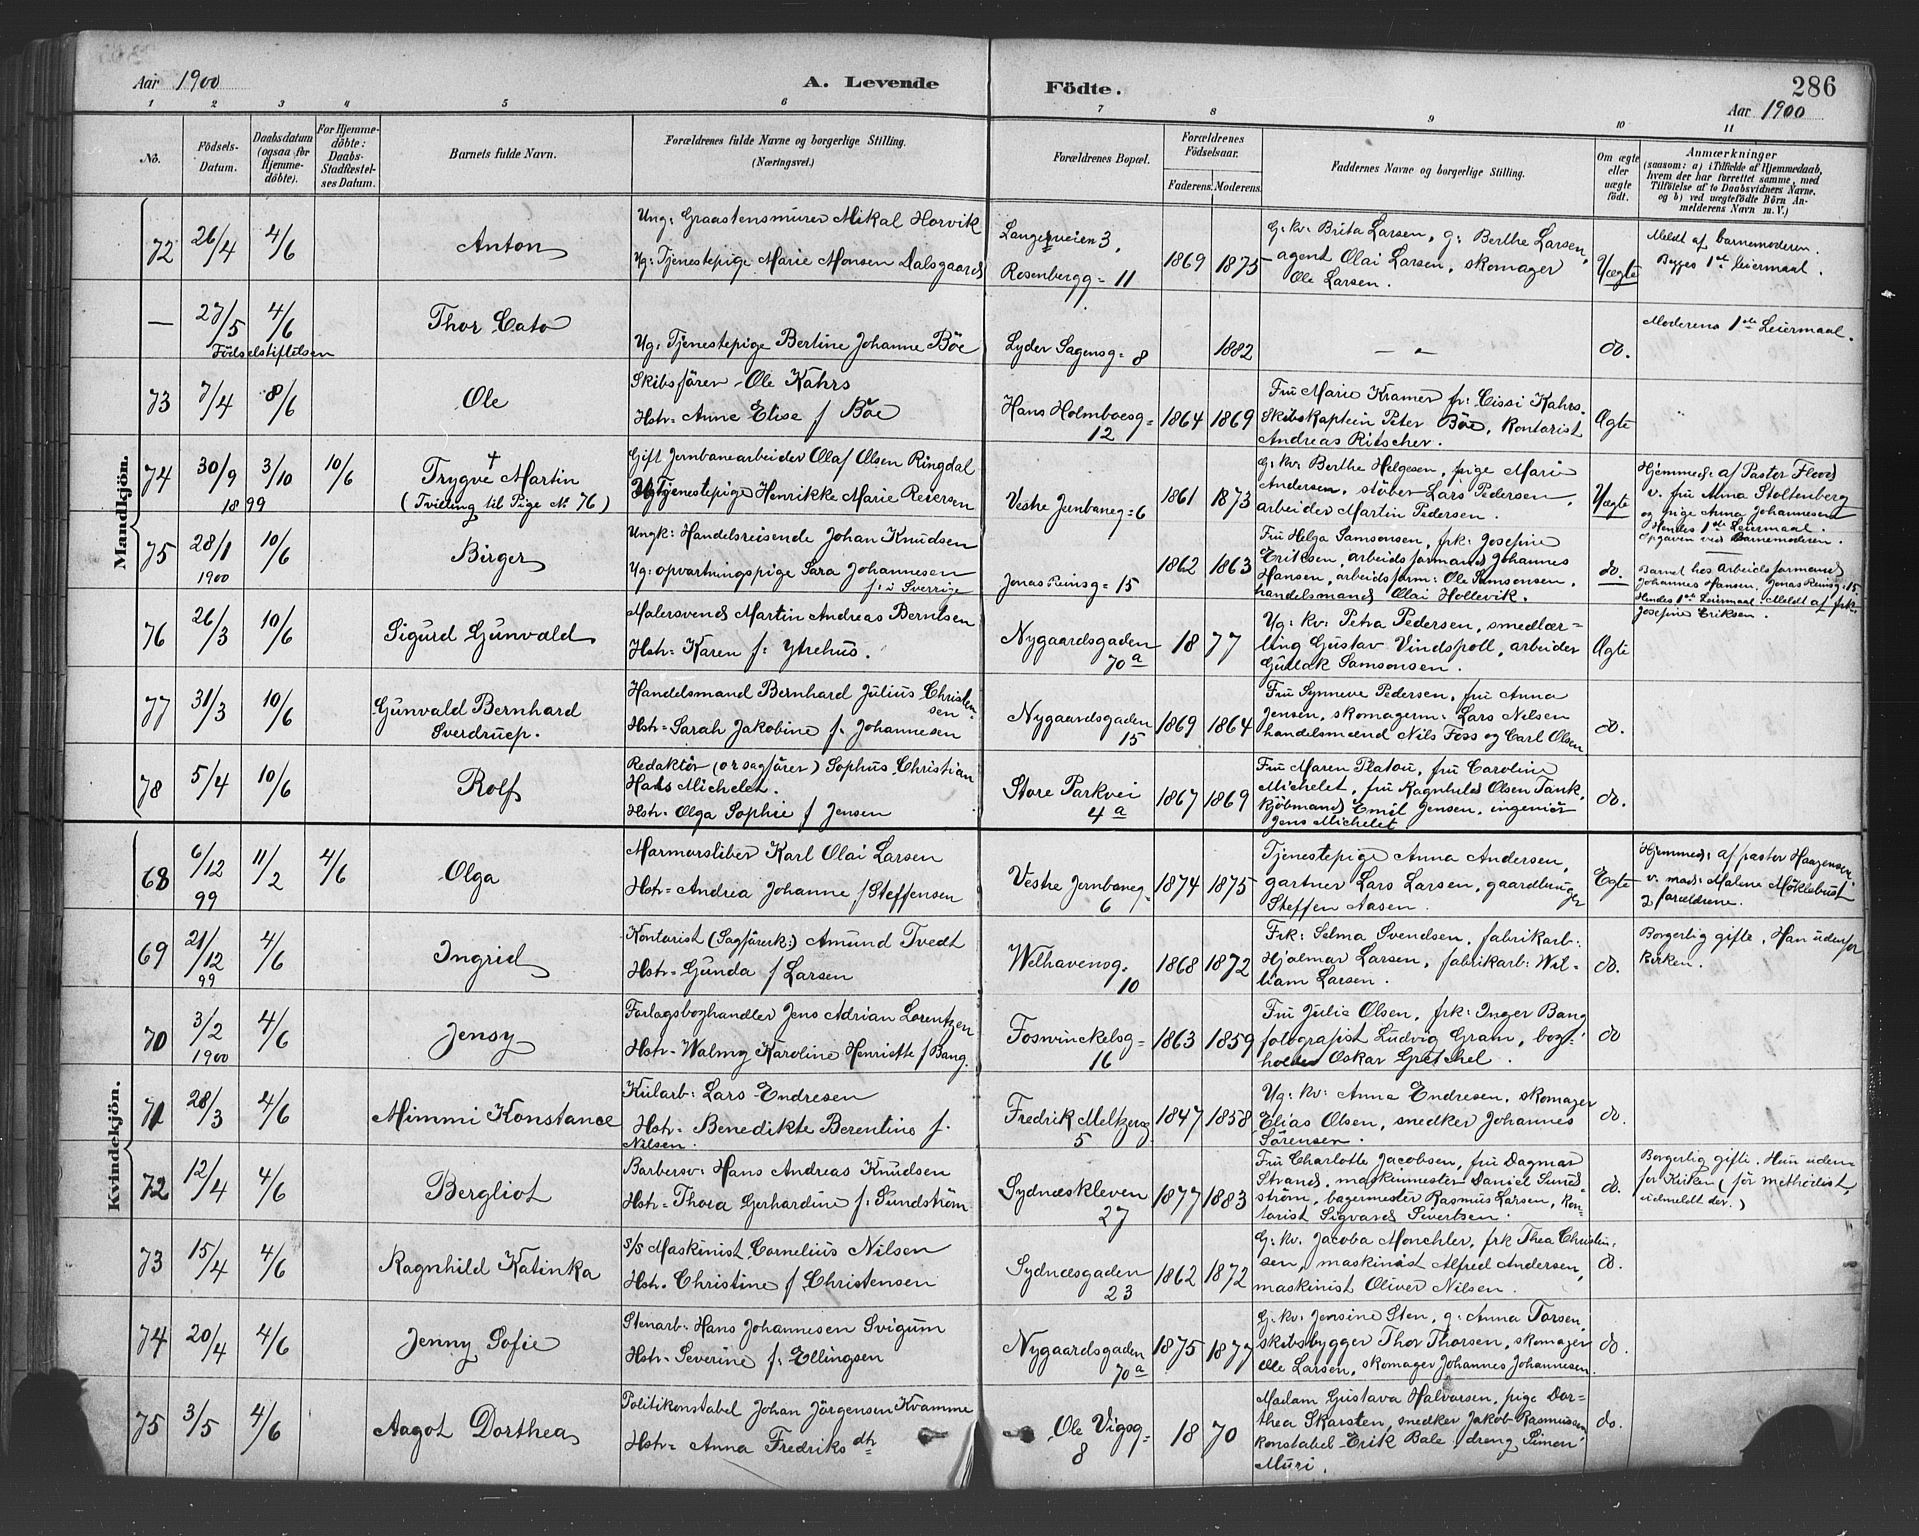 286
Aar 1900
A. Levende Födte.
Aar 1900
1 2 3 4 5 6 7 8 9 10 11
No.
Födsels-Datum.
Daabsdatum (ogsaa for Hjemme-döbte).
For Hjemme-döbte: Daabs-Stadfæstel-ses Datum.
Barnets fulde Navn.
Forældrenes fulde Navne og borgerlige Stilling.
(Næringsvei.)
Forældrenes Bopæl.
Forældrenes Födselsaar.
Faderens. Moderens.
Faddernes Navne og borgerlige Stilling.
Om ægte eller uægte födt.
Anmærkninger
(saasom: a) i Tilfælde af Hjemmedaab, hvem der har forrettet samme, med Tilföielse af to Daabsvidners Navne, og b) ved uægtefödte Börn An-melderens Navn m. V.)
Mandkjön.
72 26/4 4/6 Anton
Ung: Graastensmurer Mikal Horvik
Ug: Tjenestepige Marie Monsen Dalsgaard
Langeveien 3.
Rosenbergg= 11
1869 1875
G: kv: Brita Larsen, g: Berthe Larsen,
agent Olai Larsen, skomager
Ole Larsen.
Uægte
Meldt af barnemoderen.
Begges 1ste leiermaal.
— 27/5 4/6 Thor Cato
Födselsstiftelsen
Ug: Tjenestepige Bertine Johanne Böe
Lyder Sagensg= 8
1882
— " —
do.
Moderens 1ste Leiermaal.
73 7/4 8/6 Ole
Skibsförer Ole Kahrs
Hstr= Anne Elise f Böe
Hans Holmboesg=
12
1864 1869
Fru Marie Kramer fr: Cissi Kahrs.
Skibskaptein Peter Böe, kontorist
Andreas Ritscher.
Ægte
74 30/9 3/10 10/6 Trygve † Martin
1899
(Tvilling til Pige No 76)
Gift Jernbanearbeider Olaf Olsen Ringdal
Ug: Tjenestepige Henrikke Marie Reiersen
Vestre Jernbaneg= 6
1861 1873
G: kv: Berthe Helgesen, pige Marie
Andersen, stöber Lars Pedersen,
arbeider Martin Pedersen.
Uægte
Hjemmed: af Pastor Flood
v. fru Anna Stoltenberg
og pige Anna Johannesen
Hendes 1ste Leiermaal.
Opgaven ved Barnemoderen.
75 28/1 10/6 Birger
1900
Ungk: Handelsreisende Johan Knudsen
Ug: opvartningspige Sara Johannesen
f: i Sverrige
Jonas Reinsg= 15
1862 1863
Fru Helga Samsonsen, frk: Josefine
Eriksen, arbeidsformand Johannes
Hansen, arbeidsform: Ole Samsonsen,
handelsmand Olai Hollevik.
do.
Barnet hos Arbeidsformand
Johannes Hansen, Jonas Reinsg= 15.
Hendes 1ste Leiermaal. Meldt af frk:
Josefine Eriksen.
76 26/3 10/6 Sigurd Gunvald
Malersvend Martin Andreas Berntsen
Hstr= Karen f: Ytrehus.
Nygaardsgaden
70a
1877
Ug: kv: Petra Pedersen, smedlær=
ling Gustav Vindspoll, arbeider
Gullak Samsonsen.
Ægte
77 31/3 10/6 Gunvald Bernhard
Sverdruep.
Handelsmand Bernhard Julius Christen-
sen
Hstr= Sarah Jakobine f. Johannesen
Nygaardsgaden
15
1869 1864
Fru Synneve Pedersen, fru Anna
Jensen, skomagerm: Lars Nilsen
handelsmænd Nils Foss og Carl Olsen
do.
78 5/4 10/6 Rolf
Redaktör (orsagförer) Sophus Christian
Hans Michelet.
Hstr= Olga Sophie f Jensen
Store Parkvei
4a
1867 1869
Fru Maren Platou, fru Caroline
Michelet, fru Ragnhild Olsen Tank,
kjöbmand Emil Jensen, ingeniör
Jens Michelet
do.
Kvindekjön.
68 6/12 11/2 4/6 Olga
99
Marmorsliber Karl Olai Larsen
Hstr= Andrea Johanne f Steffensen
Vestre Jernbaneg=
6
1874 1875
Tjenestepige Anna Andersen,
gartner Lars Larsen, gaardbruger
Steffen Aasen.
Egte
Hjemmed: af pastor Haazensen
v. mad: Malene Möklebust
2 forældrene.
69 21/12 4/6 Ingrid
99
Kontorist (Sagförerk:) Amund Tvedt
Hstr= Gunda f Larsen
Welhavensg.
10
1868 1872
Frk: Selma Svendsen, fabrikarb:
Hjalmar Larsen, fabrikarb: Wil-
liam Larsen.
do.
Borgerlig gifte. Han udenfor
Kirken.
70 3/2 4/6 Jensy
1900
Forlagsboghandler Jens Adrian Lorentzen
Hstr= Walmy Karoline Henriette f Bang.
Fosswinckelsg=
16
1863 1859
Fru Julie Olsen, frk: Inger Bang
fotografist Ludvig Gram, bog-
holder Oskar Gretchel.
do
71 28/3 4/6 Mimmi Konstance
Kularb: Lars Endresen
Hstr= Benedikte Berentine f.
Nilsen.
Fredrik Meltzersg
5
1847 1858
Ug: kv: Anna Endresen, skomager
Elias Olsen, snedker Johannes
Sörensen.
do.
72 12/4 4/6 Bergliot
Barbersv: Hans Andreas Knudsen
Hstr= Thora Gerhardine f: Sundström
Sydnæskleven
27
1877 1883
Fru Charlotte Jacobsen, fru Dagmar
Strand, maskinmester Daniel Sund-
ström, bagermester Rasmus Larsen, kon-
torist Sigvard Sivertsen.
do.
Borgerlig gifte. Hun uden-
for Kirken (för methodist,
udmeldt der.)
73 15/4 4/6 Ragnhild Katinka
S/S Maskinist Cornelius Nilsen
Hstr= Christine f Christensen
Sydnæsgaden
23
1862 1872
G: kv. Jacoba Monchler, frk Thea Christen-
sen, maskinist Alfred Andersen,
maskinist Oliver Nilsen.
do.
74 20/4 4/6 Jenny Sofie
Stenarb: Hans Johannesen Svigum
Hstr= Severine f: Ellingsen
Nygaardsgaden
70a
1875 1877
G: kv: Jensine Sten, g: Anna Torsen,
skibsbygger Thor Thorsen, skomager
Ole Larsen, skomager Johannes Johannesen
do.
75 3/5 4/6 Aagot Dorthea
Politikonstabel Johan Jörgensen Kvamme
Hstr= Anna Fredriksdtr
Ole Vigsg=
8
1870
Madam Gustava Halvorsen, pige Dor=
thea Skarsten, snedker Jakob Rasmussen
konstabel Erik Bale, dreng Simon
Muri.
do.